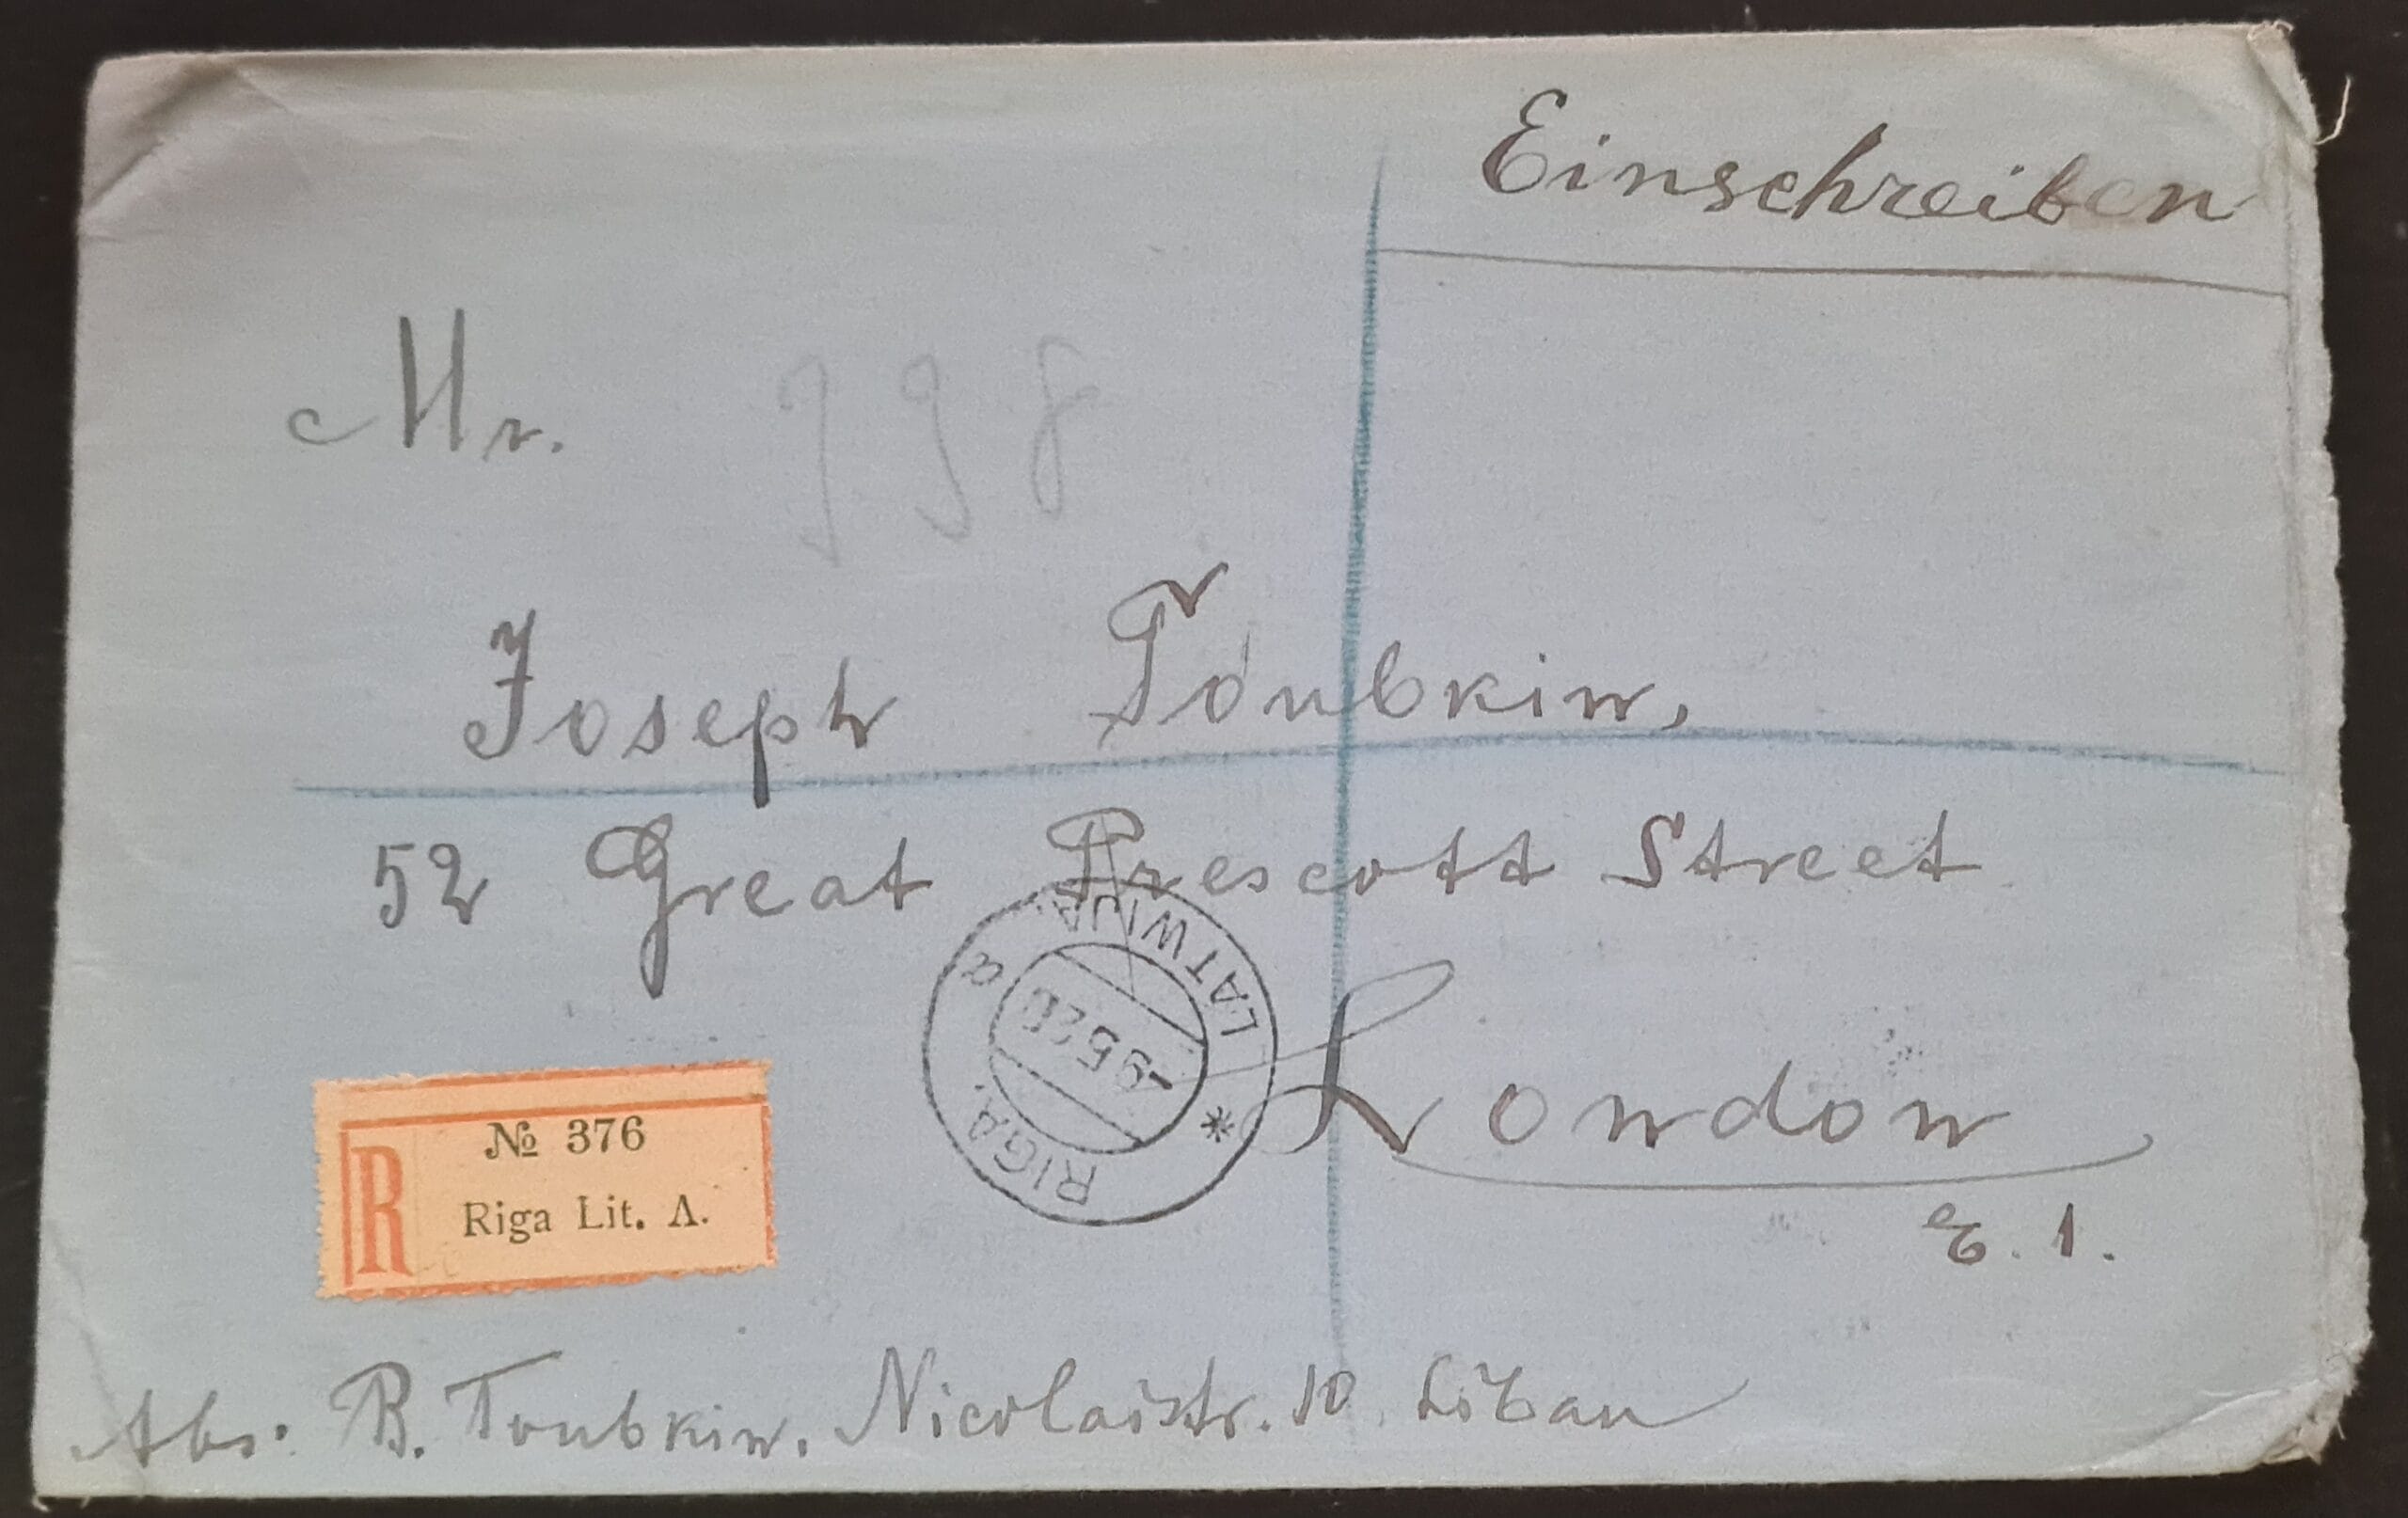 Einschreiben
Mr.
Joseph Toubkin,
52 Great Prescott Street
London
E. 1.
RIGA. LATWIJA
-9 5 20
a
№ 376
R
Riga Lit. A.
Abs. B. Toubkin, Nicolaistr. 10, Libau